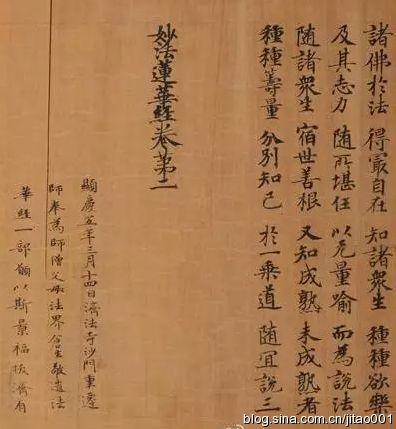 諸佛於法 得㝡自在 知諸眾生 種種欲樂
及其志力 隨所堪任 以无量喻 而為說法
隨諸眾生 宿世善根 又知成熟 未成熟者
種種籌量 分別知已 於一乘道 隨宜說三
妙法蓮華經卷第二
顯慶五年三月十四日濟法寺沙門重遷
師奉為師僧父母法界生敬造法
華經一部願以斯景福拔濟有
blog.sina.com.cn/jitao001